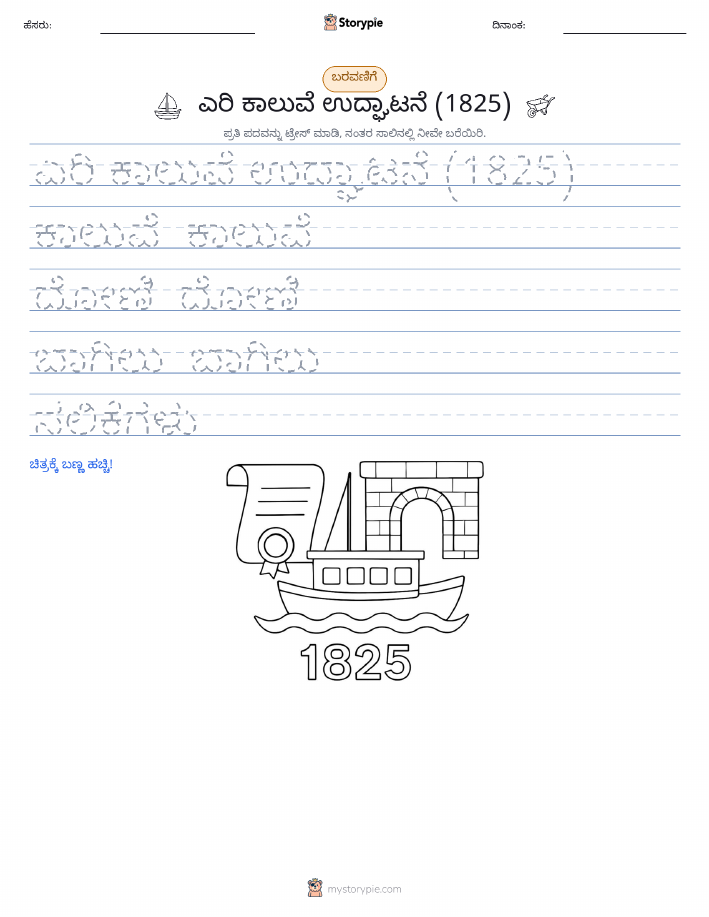 ಹೆಸರು:
Storypie
ದಿನಾಂಕ:
ಬರವಣಿಗೆ
ಎರಿ ಕಾಲುವೆ ಉದ್ಘಾಟನೆ (1825)
ಪ್ರತಿ ಪದವನ್ನು ಟ್ರೇಸ್ ಮಾಡಿ, ನಂತರ ಸಾಲಿನಲ್ಲಿ ನೀವೇ ಬರೆಯಿರಿ.
ಎರಿ ಕಾಲುವೆ ಉದ್ಘಾಟನೆ (1825)
ಕಾಲುವೆ ಕಾಲುವೆ
ದೋಣಿ ದೋಣಿ
ಬಾಗಿಲು ಬಾಗಿಲು
ಸಲಿಕೆಗಳು
ಚಿತ್ರಕ್ಕೆ ಬಣ್ಣ ಹಚ್ಚಿ!
1825
mystorypie.com